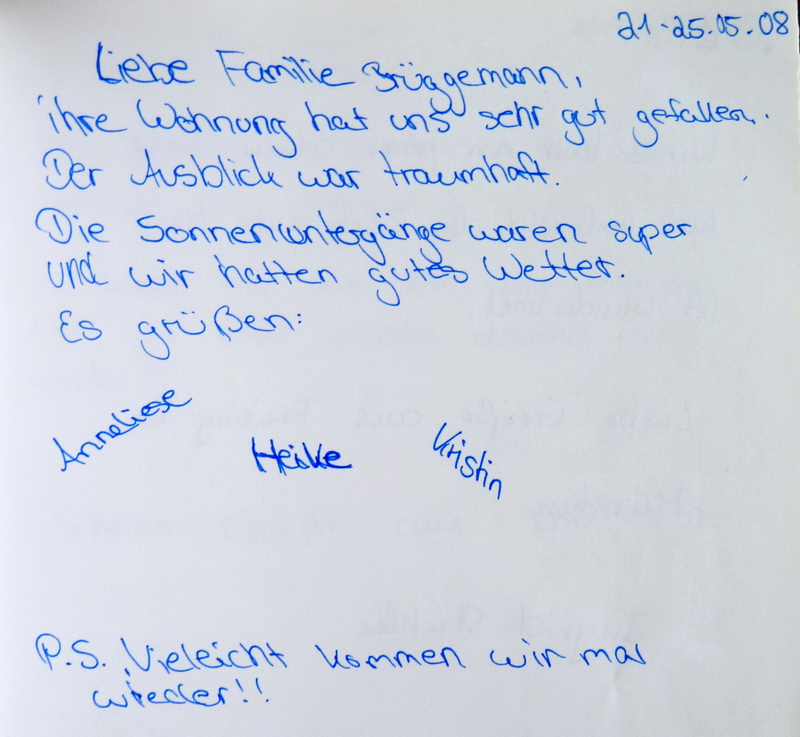 21-25.05.08
Liebe Familie Brüggemann,
ihre Wohnung hat uns sehr gut gefallen.
Der Ausblick war traumhaft.
Die Sonnenuntergänge waren super
und wir hatten gutes Wetter.
Es grüßen:
Anneliese
Heike
Kristin
P.S. Vieleicht kommen wir mal
wieder!!